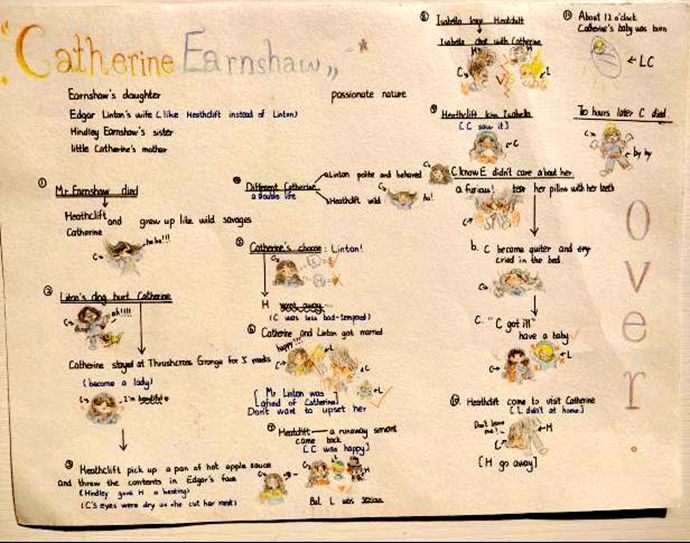 "Catherine Earnshaw"
Earnshaw's daughter
passionate nature
Edgar Linton's wife (like Heathclift instead of Linton)
Hindley Earnshaw's sister
little Catherine's mother
① Mr Earnshaw died
Heathclift and grew up like wild savages
Catherine
C→ ha ha!!!
② Linton's dog hurt Catherine
C→ ah!!!!
Catherine stayed at Thrushcross Grange for 5 weeks
(become a lady)
C→ I'm beautiful
③ Heathclift pick up a pan of hot apple sauce
and threw the contents in Edgar's face
(Hindley gave H a beating)
(C's eyes were dry as she cut her meat)
④ Different Catherine
a double life
Linton polite and behaved
Heathclift wild
C→ ha!
⑤ Catherine's choose: Linton!
H went away
(C was less bad-tempered)
⑥ Catherine and Linton got married
happy!!!
[Mr Linton was
afraid of Catherine]
Don't want to upset her
⑦ Heathclift — a runaway servant
came back
[C was happy]
But L was serious
⑧ Isabella love Heathclift
Isabella chat with Catherine
⑨ Heathclift kiss Isabella
[C saw it]
←C
C know E didn't care about her
a furious! her pillow with her teeth
b. C became quiter and
cried in the bed
c. "C got ill"
have a baby
⑩ Heathclift come to visit Catherine
[L didn't at home]
Don't leave
me!
[H go away]
⑪ About 12 o'clock
Catherine's baby was born
←LC
Two hours later C died.
C→
by by
Over.